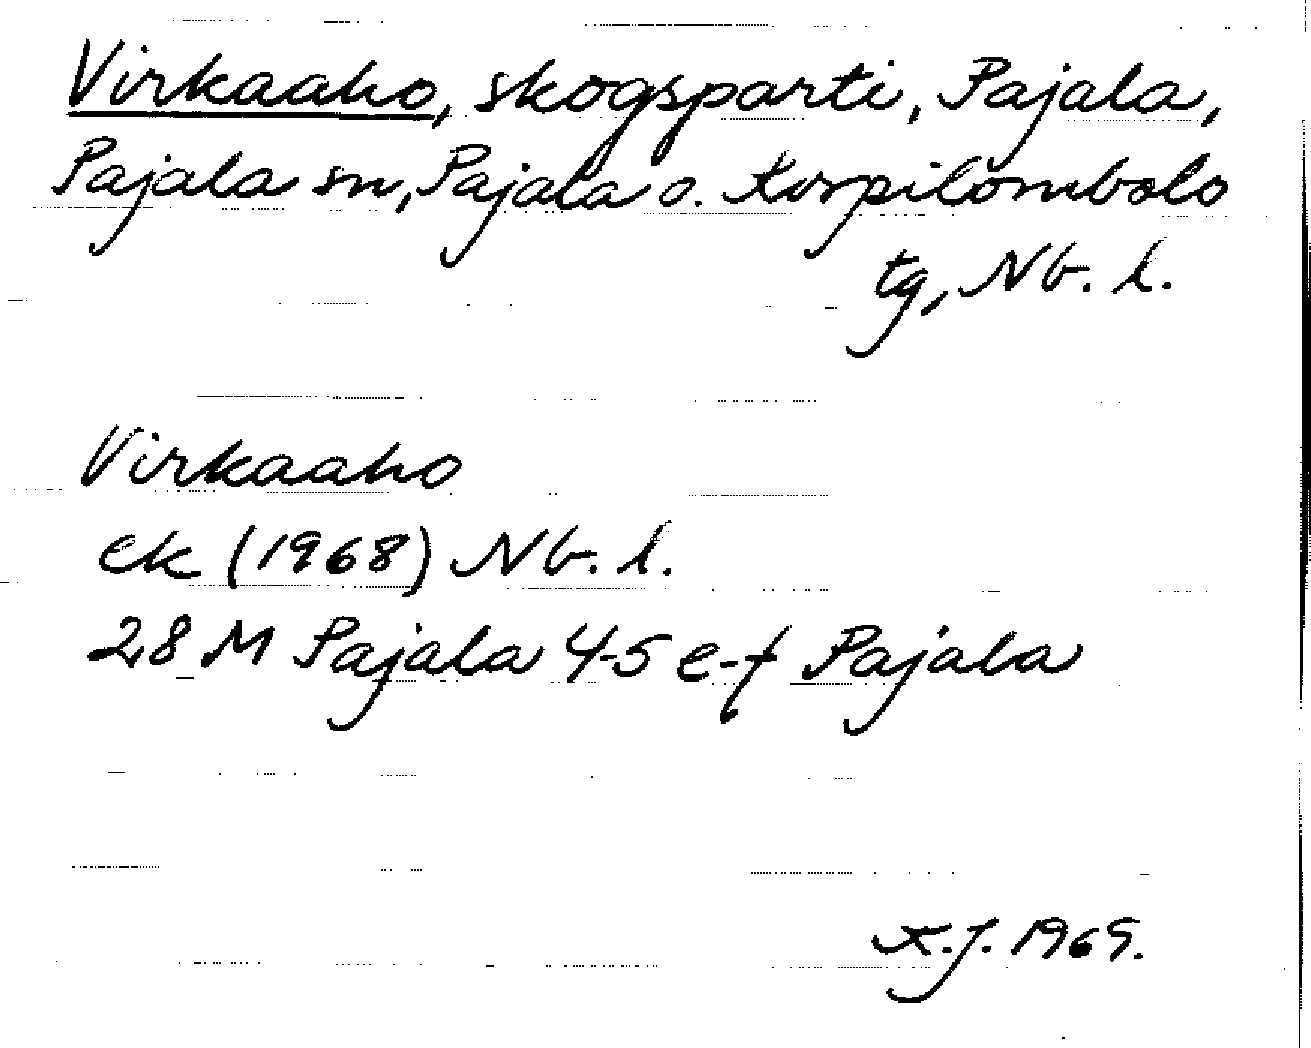 Virkaaho, skogsparti, Pajala,
Pajala sn, Pajala o. Korpilombolo
tg, Nb. l.
Virkaaho
ek (1968) Nb. l.
28 M Pajala 4-5 e-f Pajala
K.J. 1969.